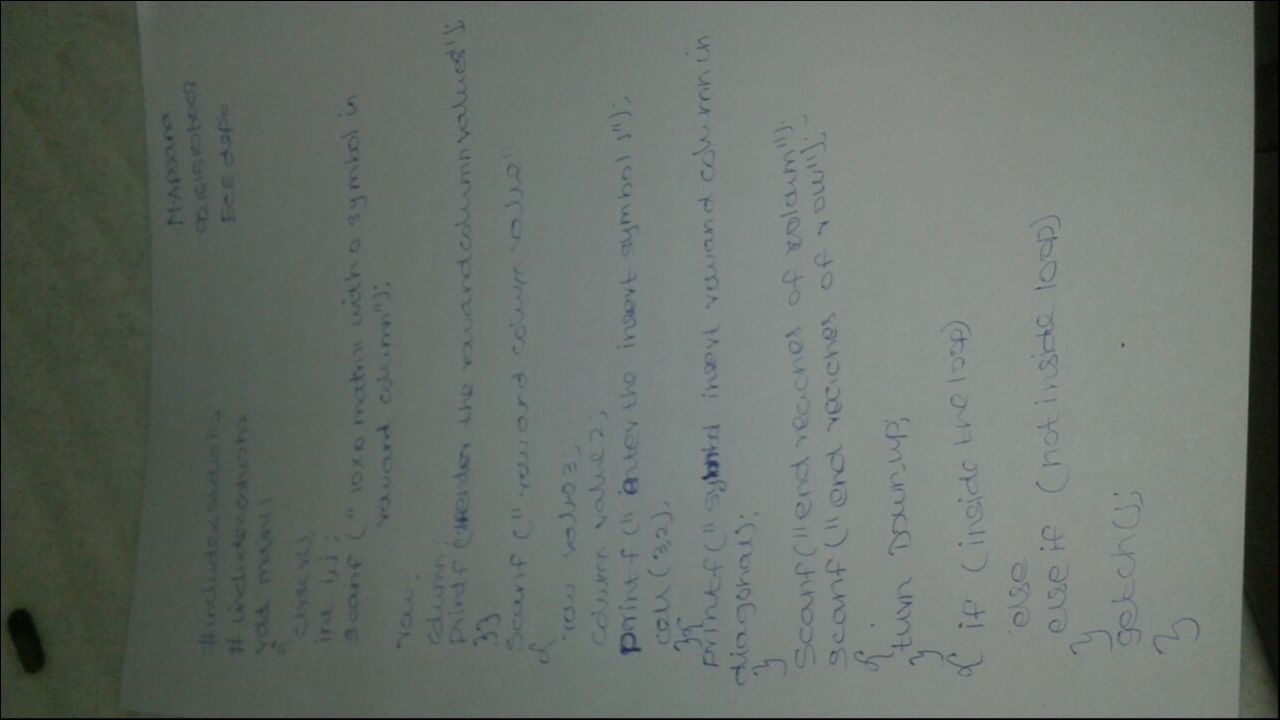 Ece dept
#include<stdio.h>
#include<conio.h>
void main()
{
clrscr();
int i,j;
scanf (" 10x10 matrix with a symbol in
row and column");
row;
column;
printf ("enter the row and column values");
}}
scanf (" row and column value"
{
row value 3;
column value 2;
printf (" enter the insert symbol :");
call (3,2);
}}
printf (" symbol insert row and column in
diagonal);
}
scanf ("end reaches of coloum");
scanf ("end reaches of row");
{
turn Down,up;
}
{ if (inside the loop)
else
else if (not inside loop)
}
getch();
}